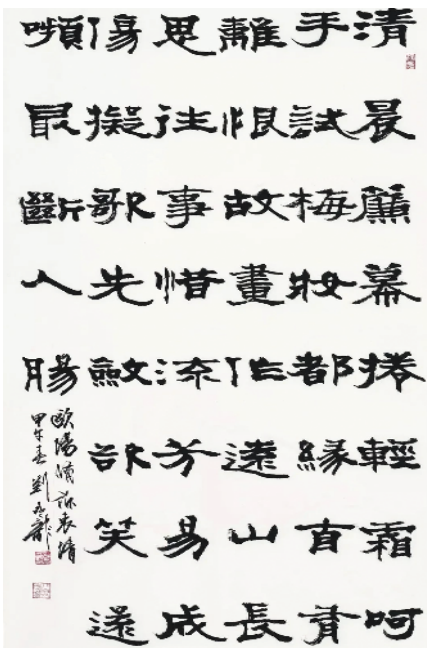 清晨簾幕捲輕霜呵
手試梅妝都緣自有
離恨故畫作遠山長
思往事惜流芳易成
傷擬歌先斂欲笑還
嚬最斷人腸
歐陽修訴衷情
甲午春劉